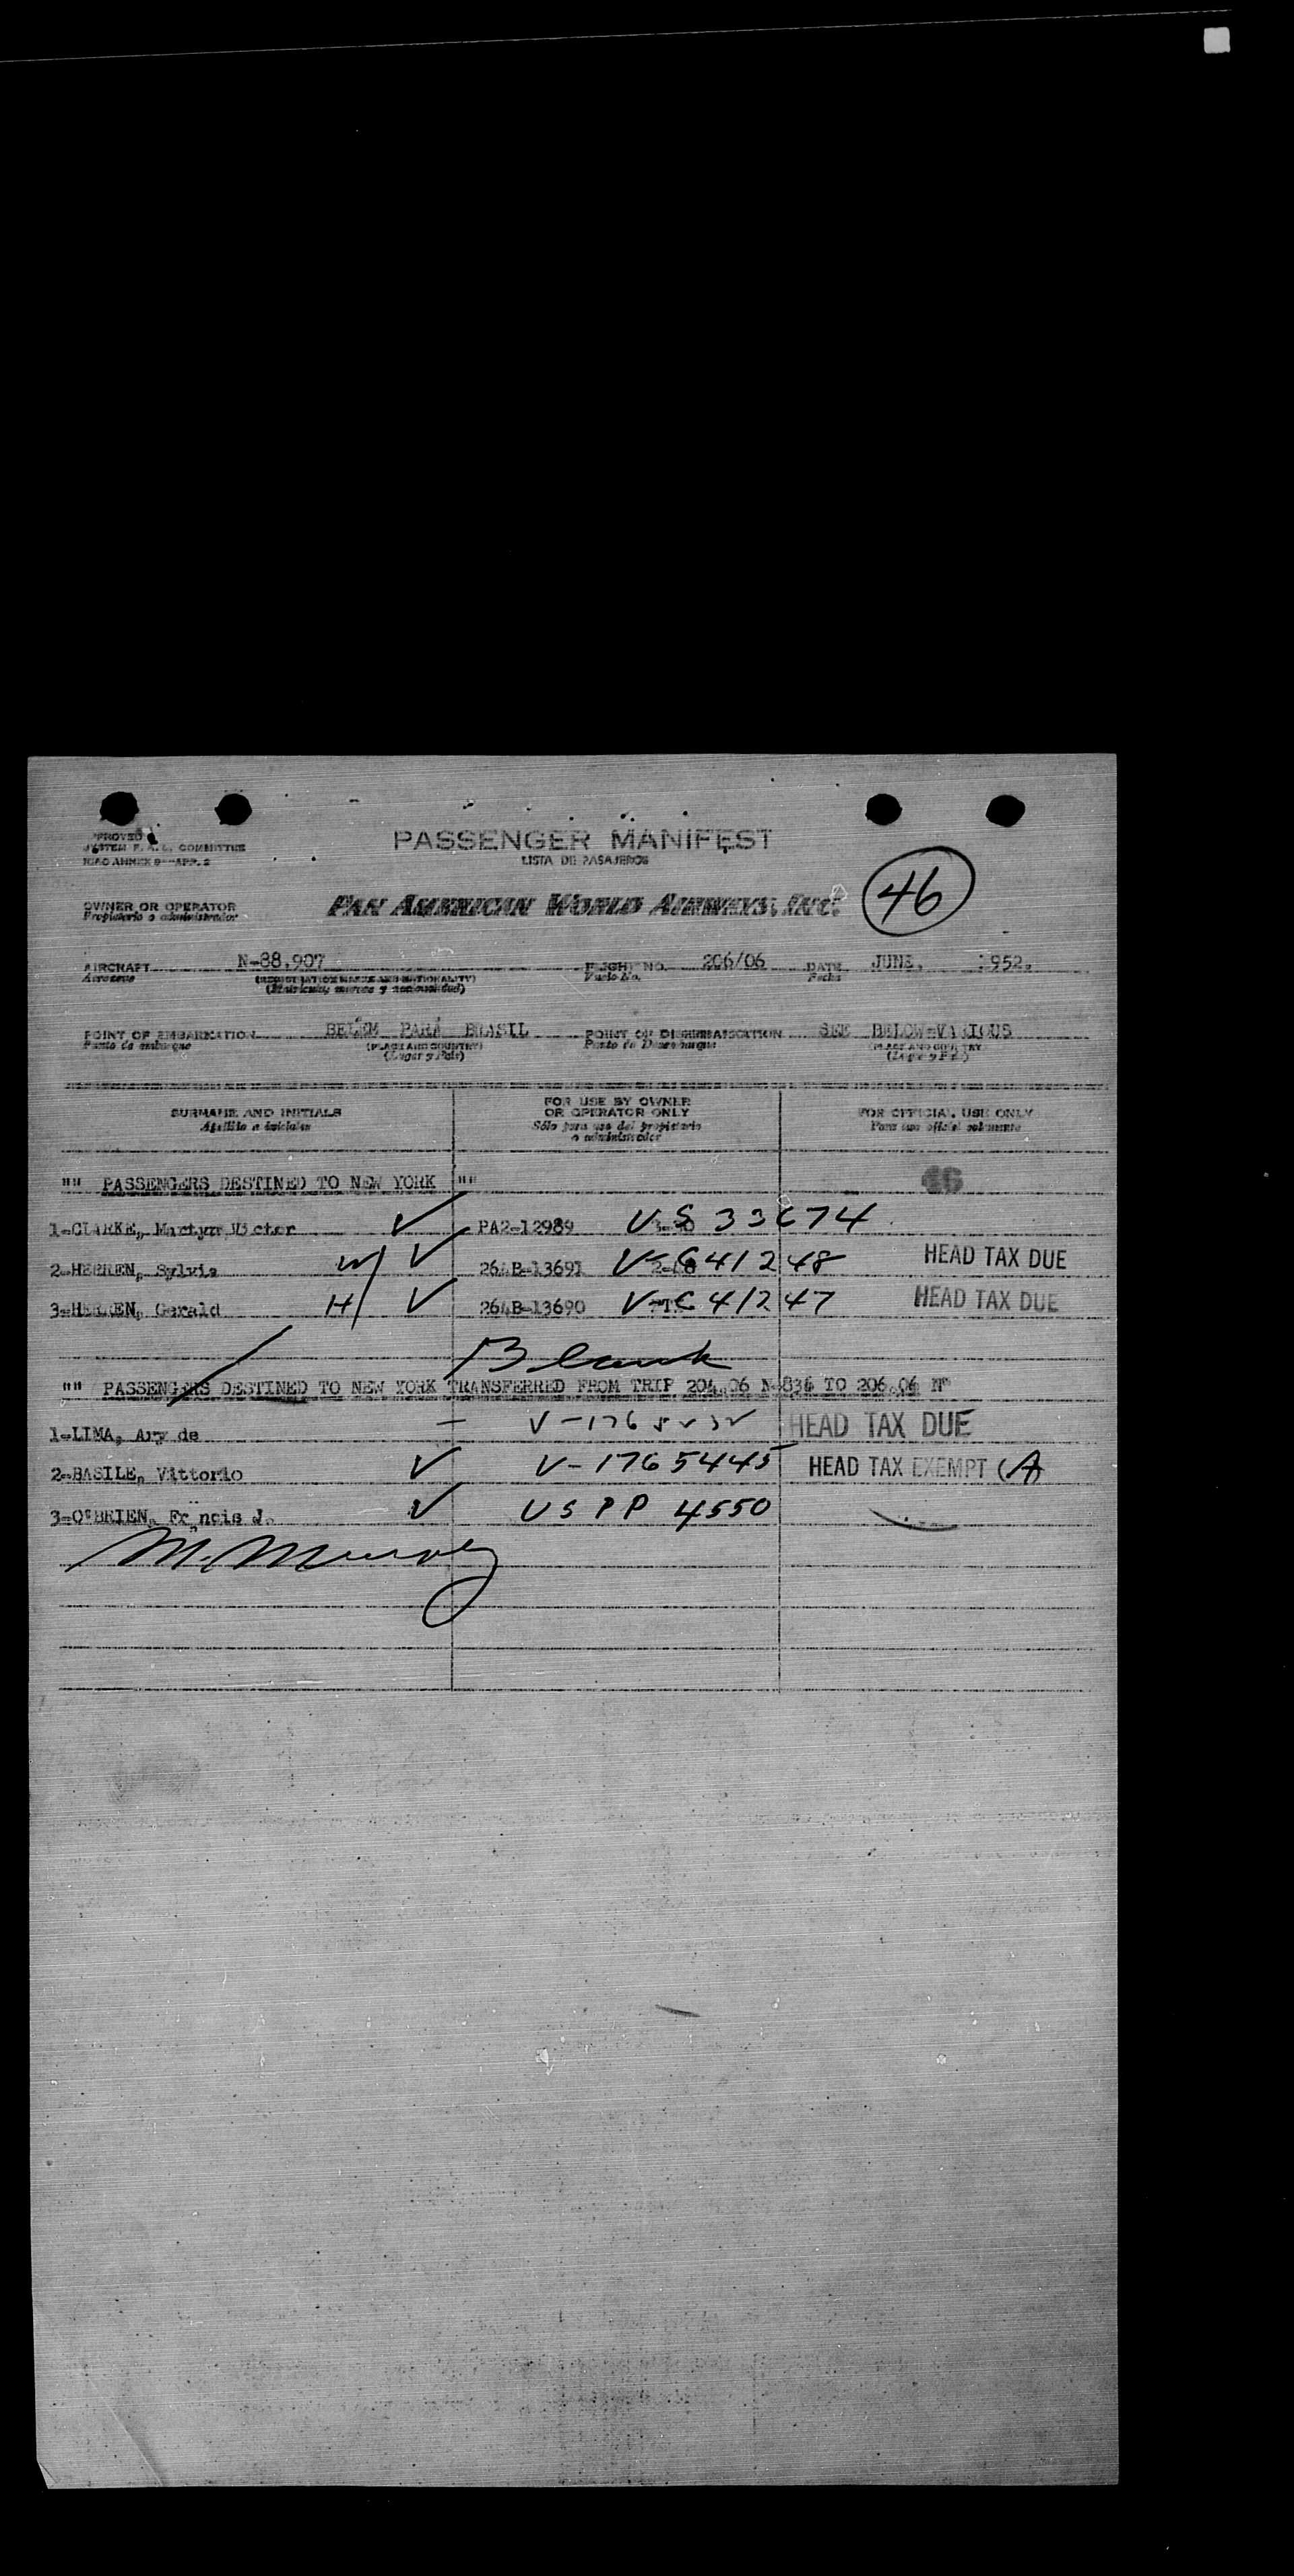 PASSENGER MANIFEST
LISTA DE PASAJEROS
SYSTEM F. A. L. COMMITTEE
ICAO ANNEX 9—APP. 2
46
OWNER OR OPERATOR
Propietario o administrador
PAN AMERICAN WORLD AIRWAYS, INC.
AIRCRAFT N-88.907 FLIGHT NO. 206/06 DATE JUNE, 952.
Aeronave Vuelo No. Fecha
(Matrícula, marcas y nacionalidad)
POINT OF EMBARKATION BELÉM PARÁ BRASIL POINT OF DISEMBARKATION SEE BELOW-VARIOUS
Punto de embarque (PLACE AND COUNTRY) Punto de Desembarque (PLACE AND COUNTRY)
(Lugar y País) (Lugar y País)
SURNAME AND INITIALS FOR USE BY OWNER OR OPERATOR ONLY FOR OFFICIAL USE ONLY
Apellido e iniciales Sólo para uso del propietario o administrador Para uso oficial solamente
"" PASSENGERS DESTINED TO NEW YORK "" 46
1-CLARKE, Martyn Victor ✓ PA2-12989 US 33674
2-HERREN, Sylvia W/ ✓ 264B-13691 V-641248 HEAD TAX DUE
3-HERREN, Gerald H/ ✓ 264B-13690 V-641247 HEAD TAX DUE
Blank
"" PASSENGERS DESTINED TO NEW YORK TRANSFERRED FROM TRIP 204.06 N-836 TO 206.06 ""
1-LIMA, Ary de — V-176 HEAD TAX DUE
2-BASILE, Vittorio ✓ V-1765445 HEAD TAX EXEMPT (A)
3-O'BRIEN, Francis J. ✓ USPP 4550
M. Murphy